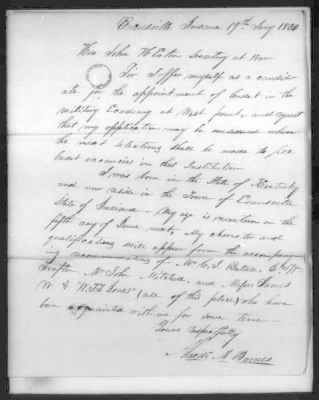 Evansville Indiana 19th Jany 1830
Hon John H Eaton Secretary at War
Sir I offer myself as a candid
ate for the appointment of Cadet in the
Military Academy at West point, and request
that my application may be considered when
the next selections shall be made to fill
Cadet vacancies in that Institution
I was born in the State of Kentucky
and now reside in the Town of Evansville
State of Indiana - My age is nineteen on the
fifth day of June next. My character and
qualifications will appear from the accompany
ing recommendations of Mr C. I. Battell,
Mr John Mitchell, and Messrs James
W. & Jones (all of this place) who have
been acquainted with me for some time -
Yours respectfully
M Barnes